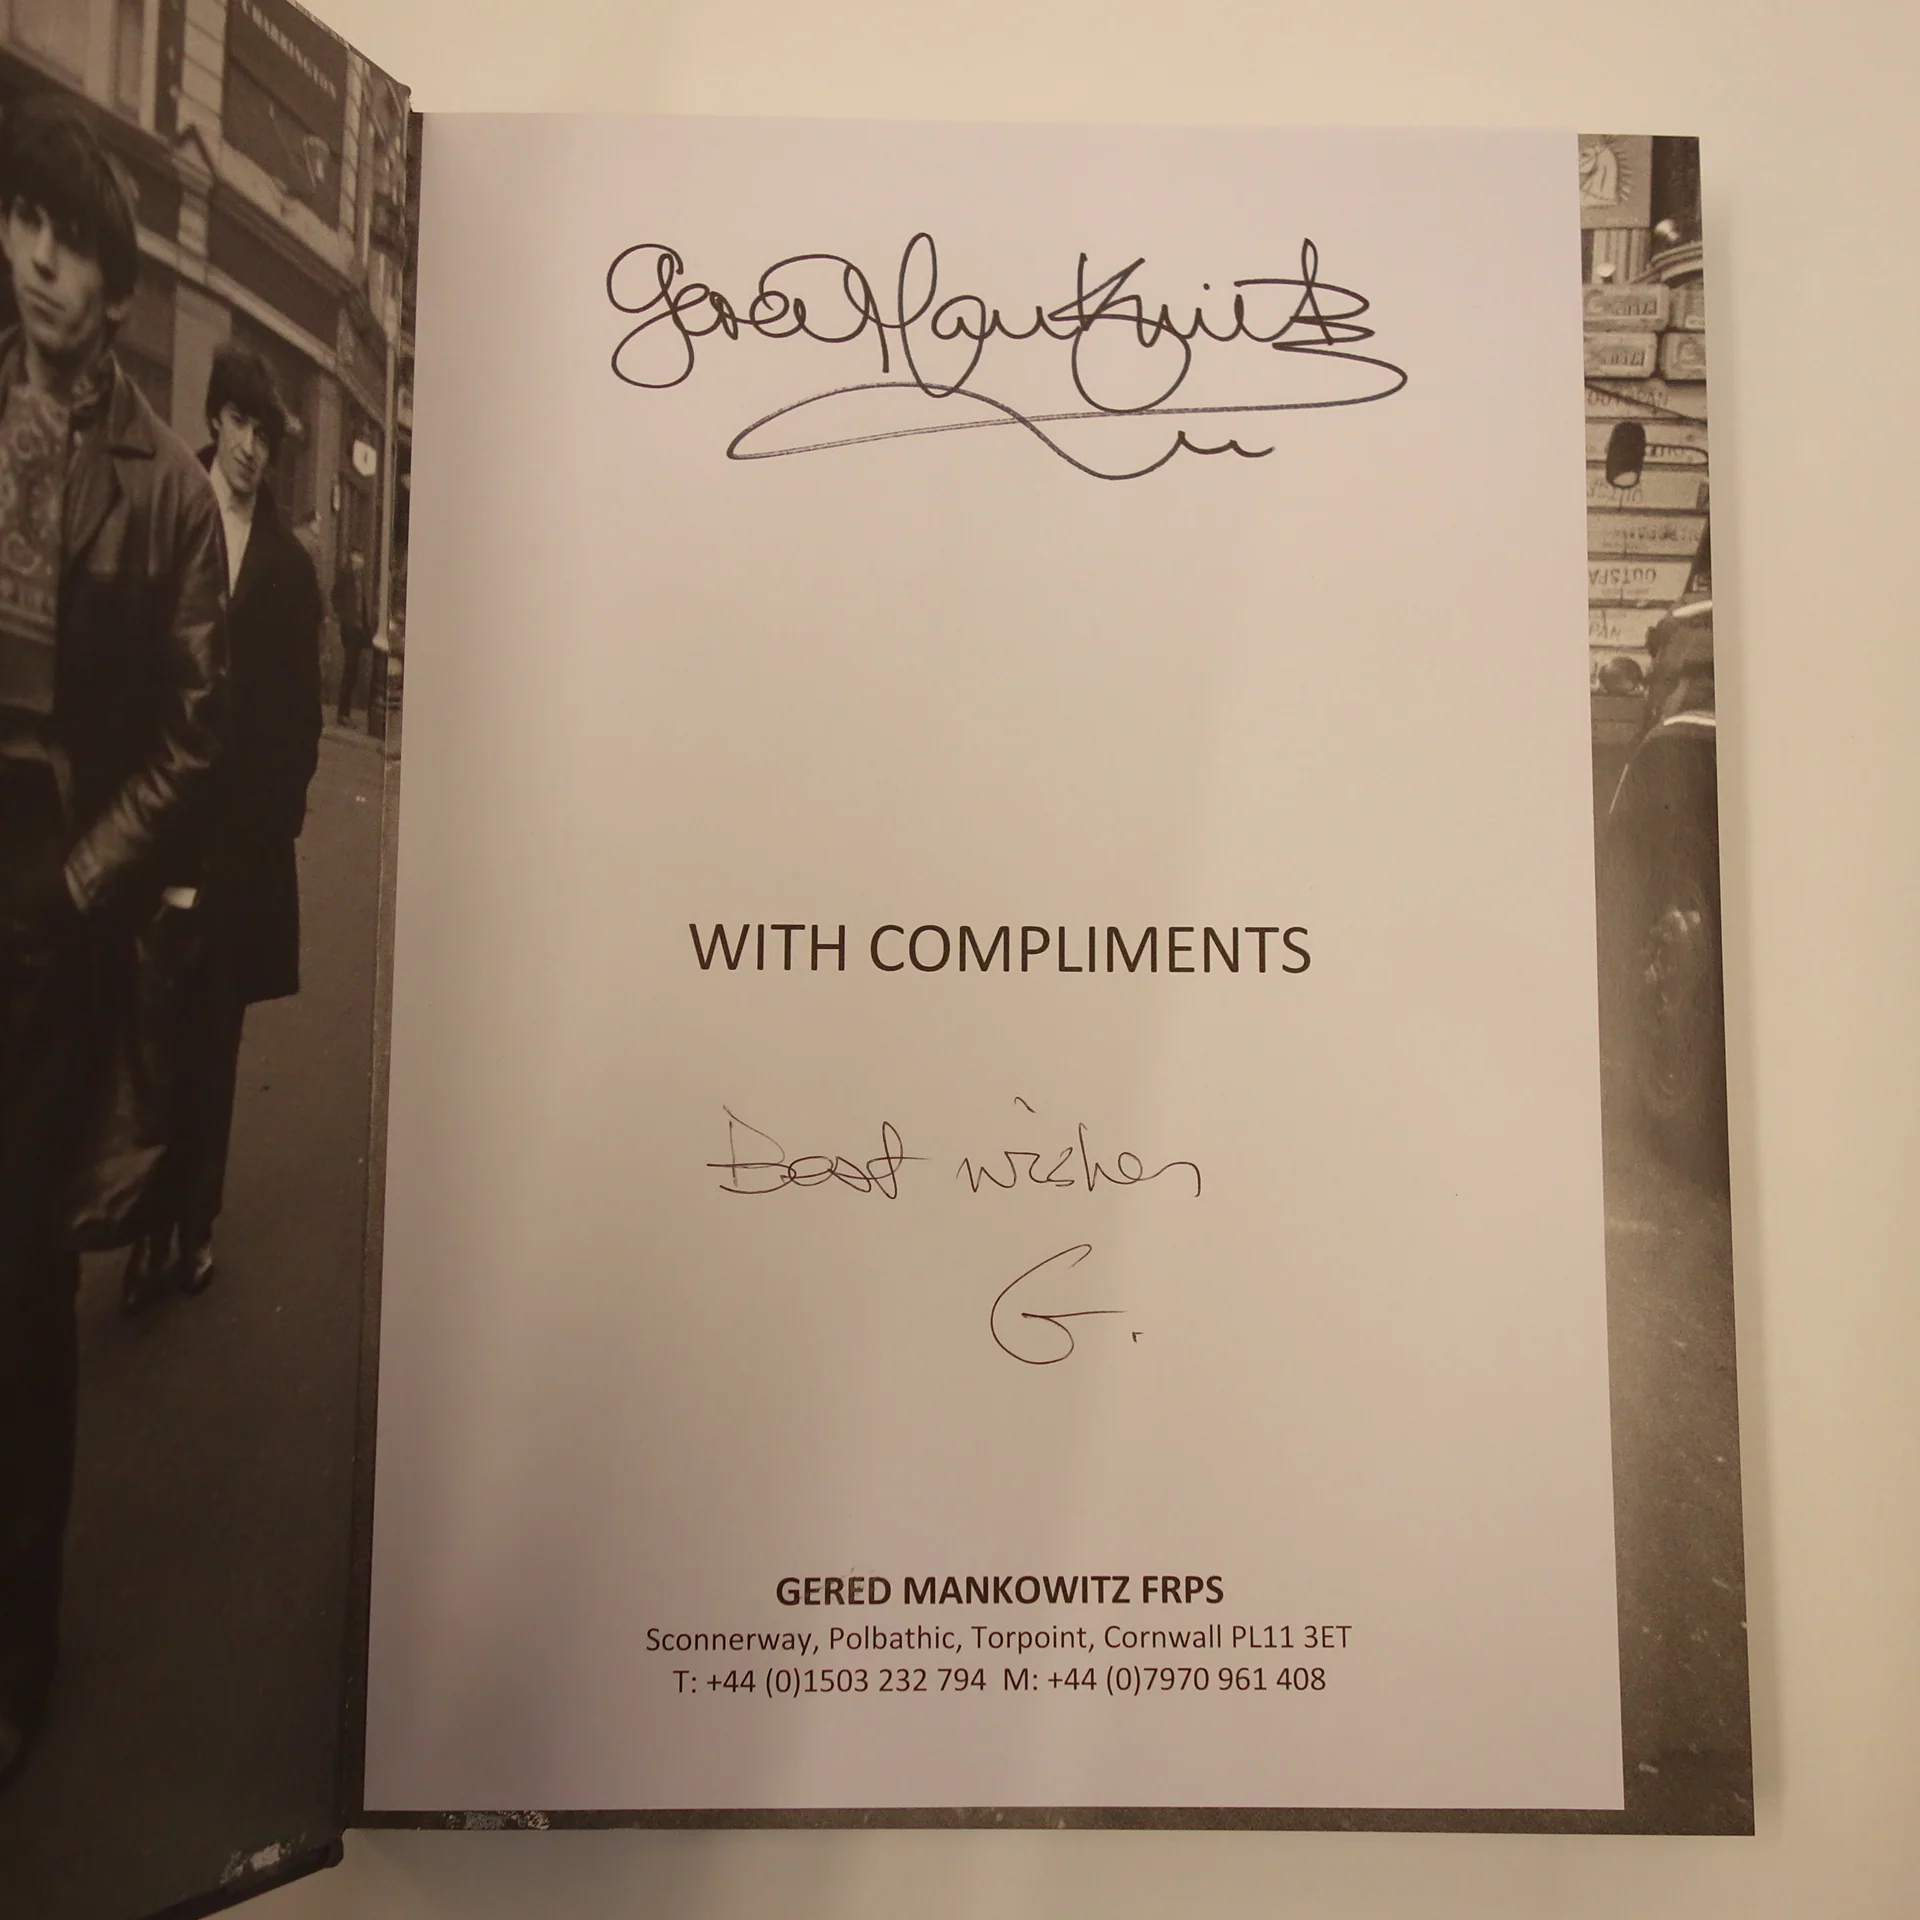 CHARRINGTON
Gered Mankowitz
WITH COMPLIMENTS
Best wishes
G.
GERED MANKOWITZ FRPS
Sconnerway, Polbathic, Torpoint, Cornwall PL11 3ET
T: +44 (0)1503 232 794 M: +44 (0)7970 961 408
OUTSPAN
OUTSPAN